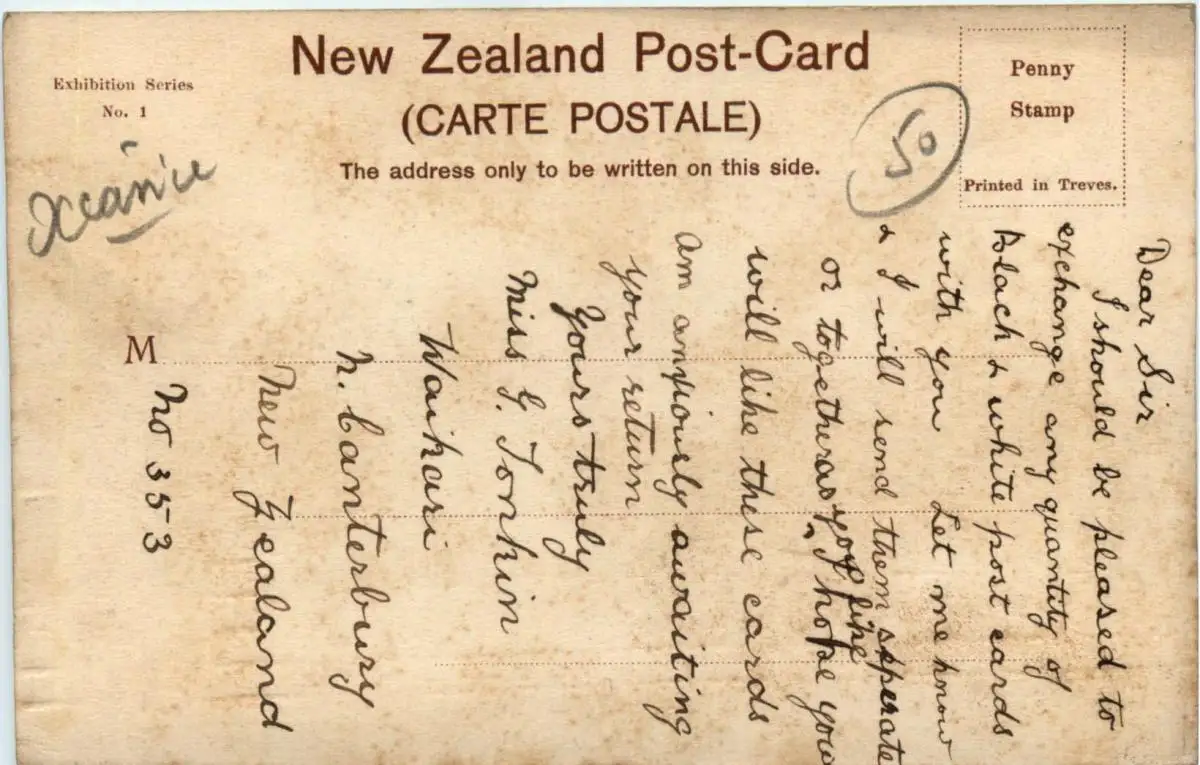 New Zealand Post-Card
(CARTE POSTALE)
The address only to be written on this side.
Exhibition Series
No. 1
Penny
Stamp
Printed in Treves.
50
Océanie
M
Dear Sir
I should be pleased to
exchange any quantity of
Black & white post cards
with you Let me know
& I will send them seperate
or together as you like
I hope you
will like these cards
am anxiously awaiting
your return
Yours truly
Miss G. Tonkin
Waikari
N. Canterbury
New Zealand
No 353